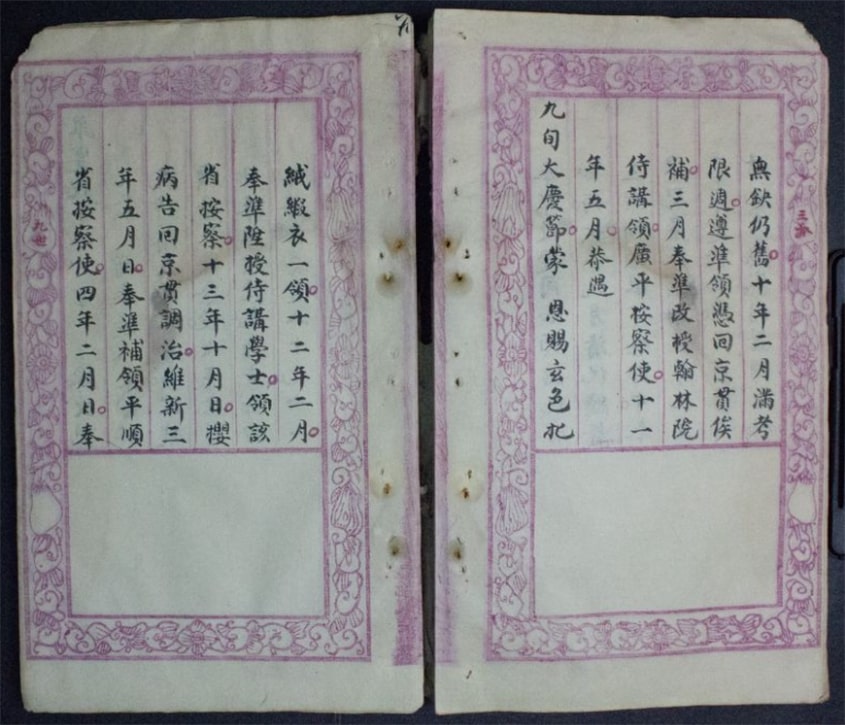 無缺仍舊十年二月滿考
限週遵準領憑回京貫俟
補三月奉準改授翰林院
侍講領廣平按察使十一
年五月恭遇
九旬大慶節蒙 恩賜玄色
絨緞衣一領十二年二月
奉準陞授侍講學士領該
省按察十三年十月日攖
病告回京貫調治維新三
年五月日奉準補領平順
省按察使四年二月日奉
九世